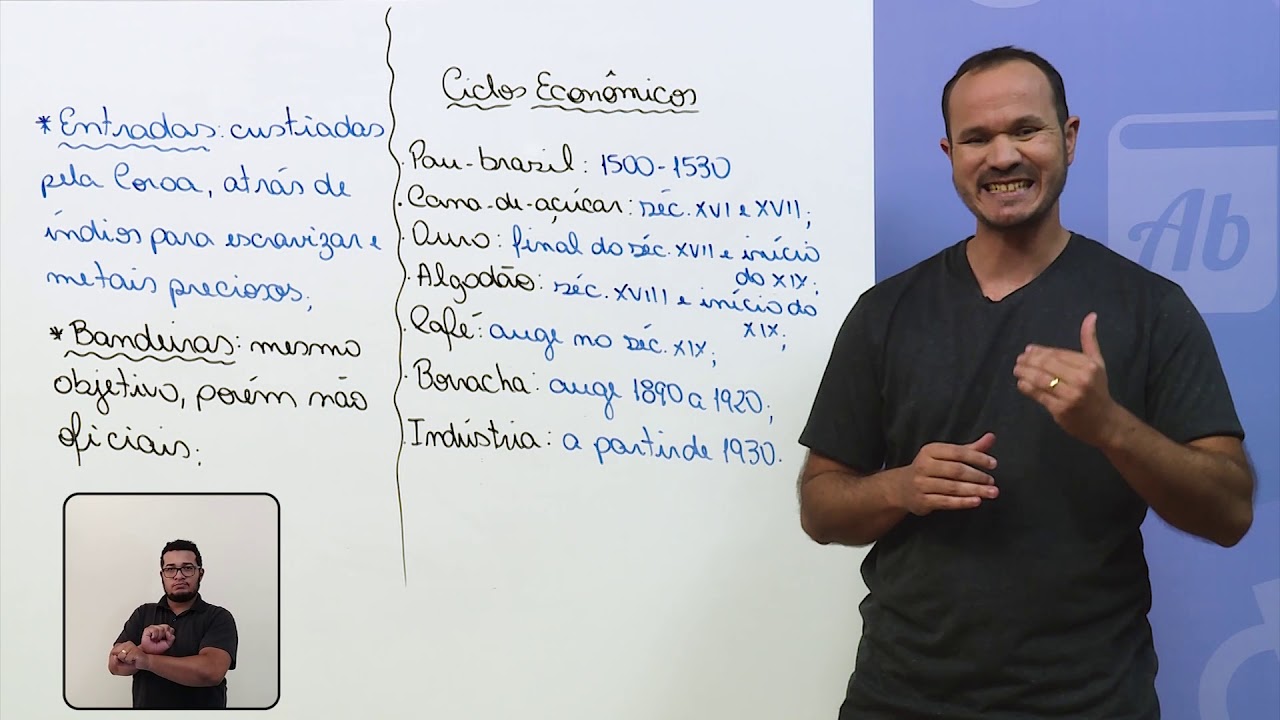 * Entradas: custiadas
pela Coroa, atrás de
índios para escravizar e
metais preciosos;
* Bandeiras: mesmo
objetivo, porém não
oficiais.
Ciclos Econômicos
. Pau-brazil: 1500-1530
. Cana-de-açúcar: séc. XVI e XVII;
. Ouro: final do séc. XVII e início
do XIX;
. Algodão: séc. XVIII e início do
XIX;
. Café: auge no séc. XIX;
. Borracha: auge 1890 a 1920;
. Indústria: a partir de 1930.
Ab